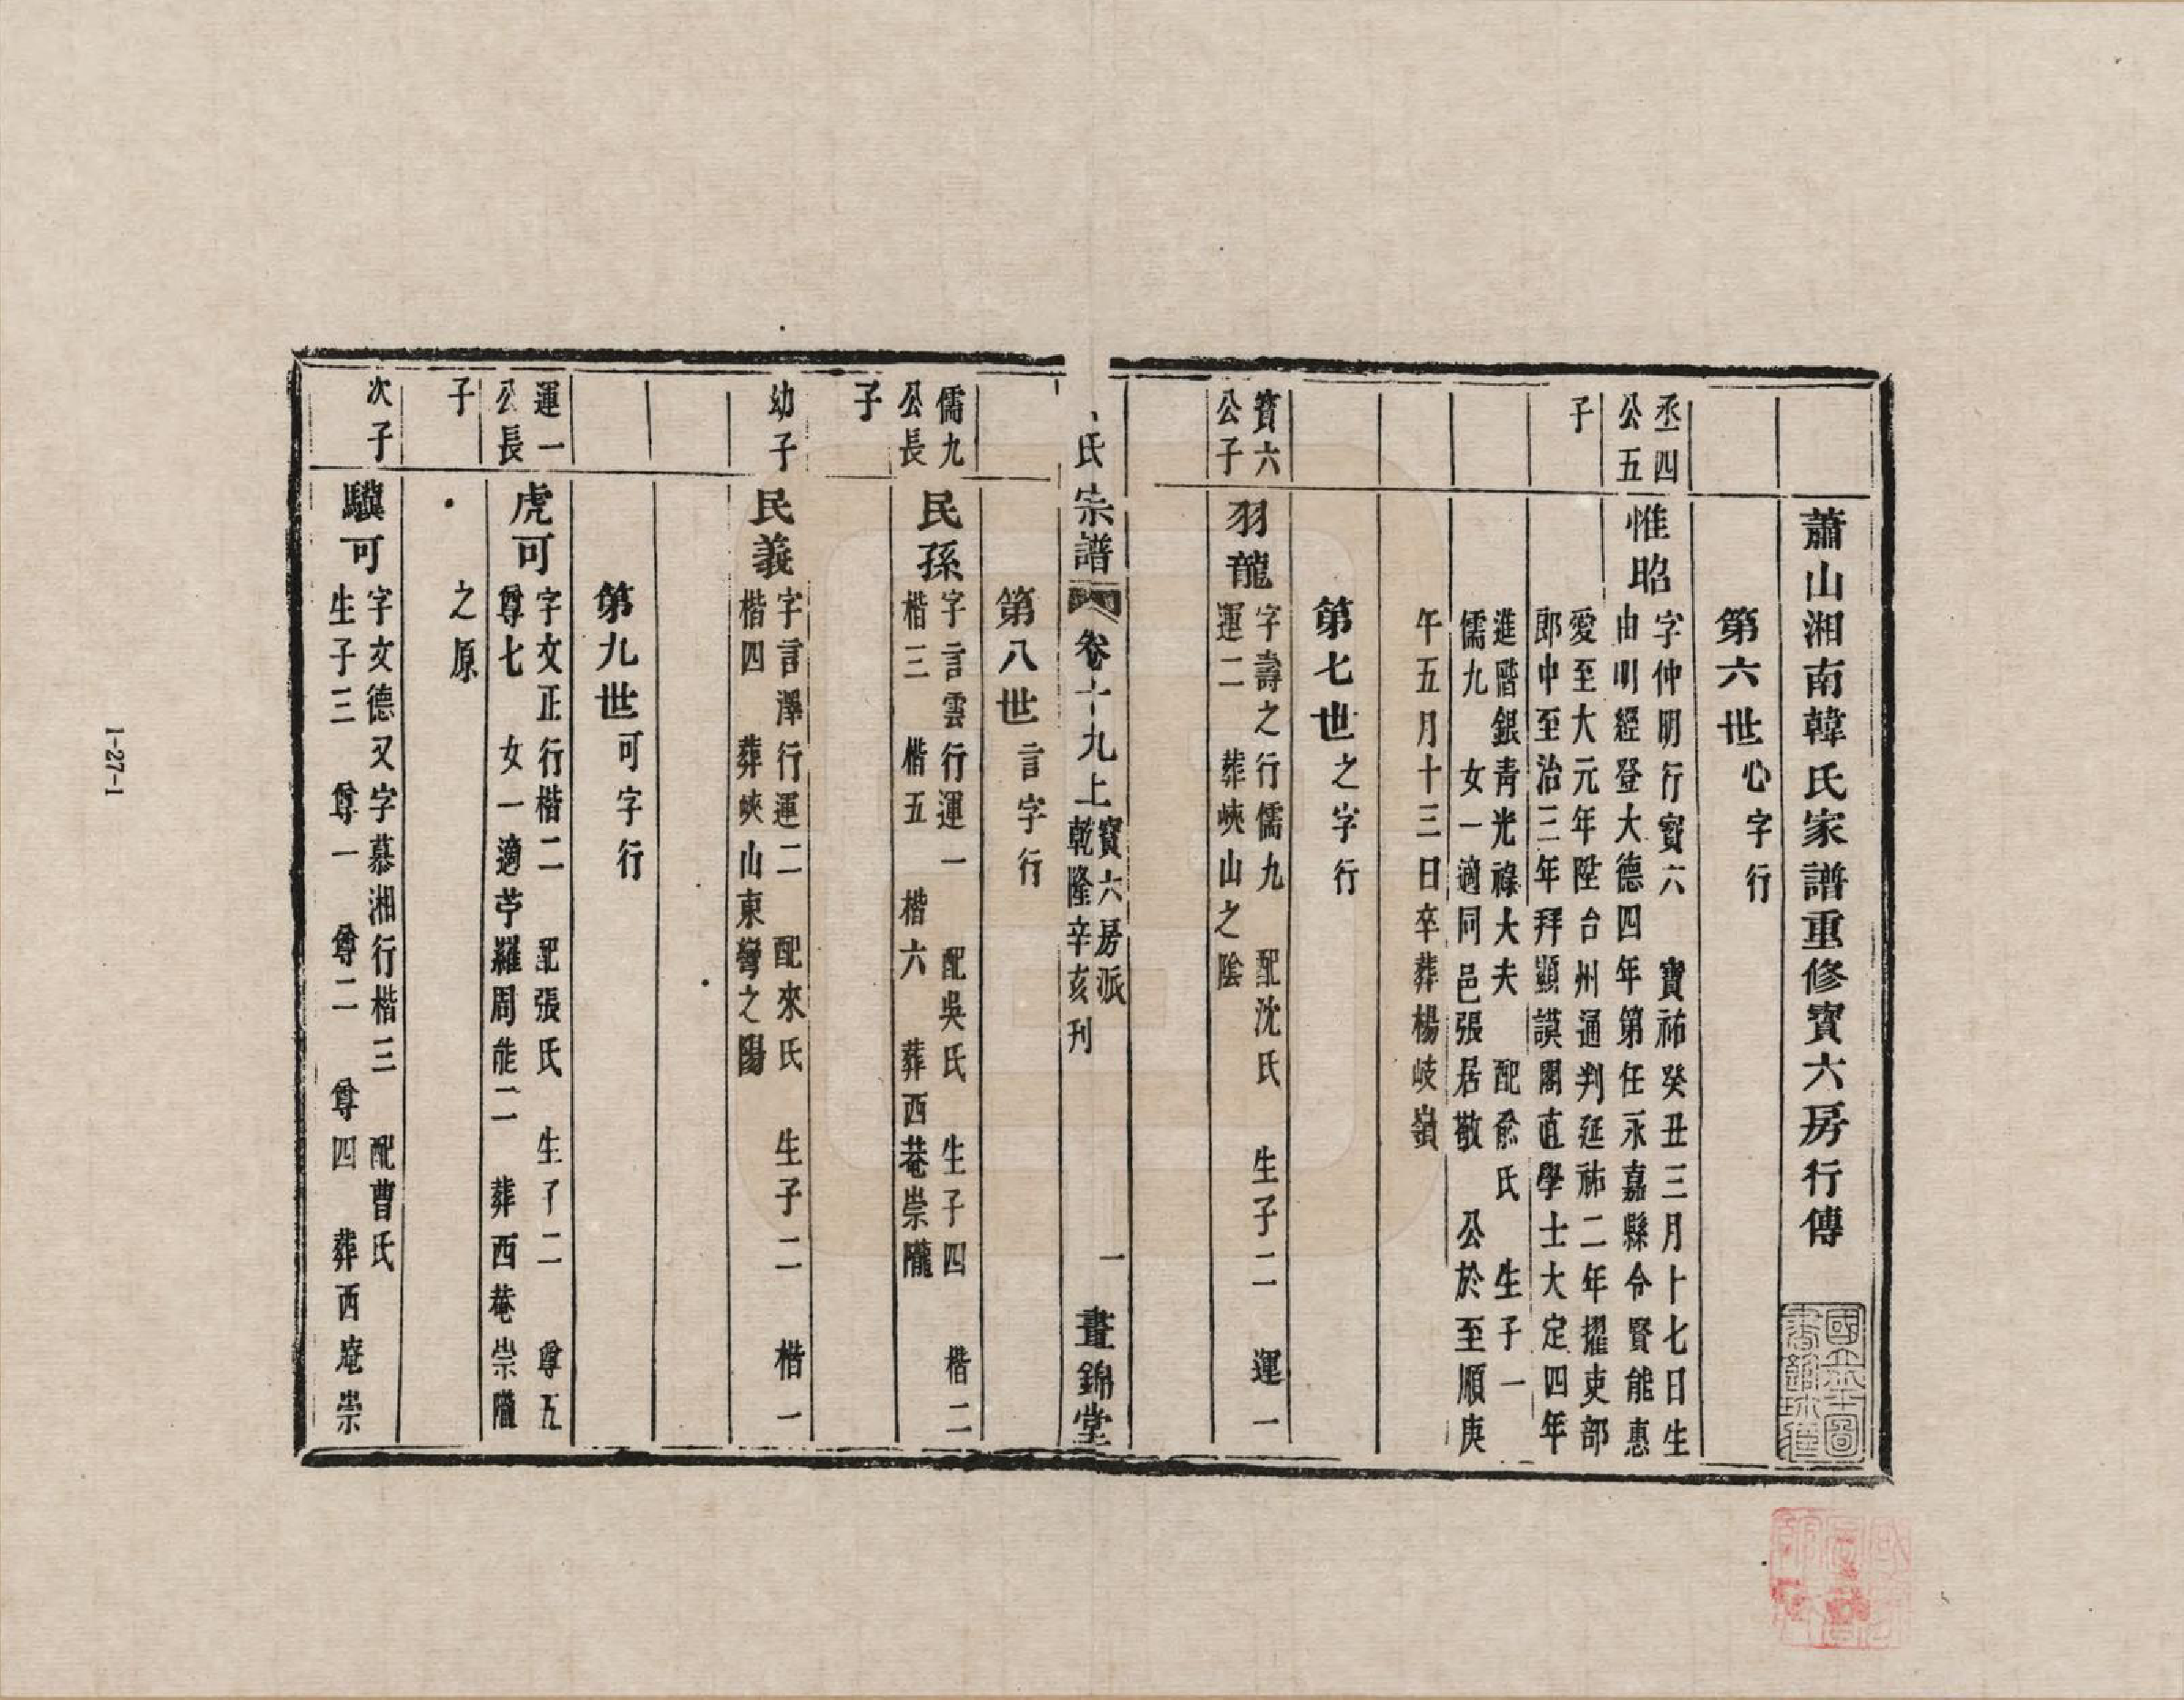 蕭山湘南韓氏家譜重修寶六房行傳
第六世心字行
丞四
公五
子
惟昭
字仲明行寶六　寶祐癸丑三月十七日生
由明經登大德四年第任永嘉縣令賢能惠
愛至大元年陞台州通判延祐二年擢吏部
郎中至治三年拜顯謨閣直學士大定四年
進階銀青光祿大夫　配俞氏　生子一
儒九　女一適同邑張居敬　公於至順庚
午五月十三日卒葬楊岐嶺
第七世之字行
寶六
公子
羽龍
字壽之行儒九　配沈氏　生子二　運一
運二　葬峽山之陰
氏宗譜　卷十九上
寶六房派
乾隆辛亥刊
一
晝錦堂
第八世言字行
儒九
公長
子
民孫
字言雲行運一　配吳氏　生子四　楷二
楷三　楷五　楷六　葬西菴崇隴
幼子
民義
字言澤行運二　配來氏　生子二　楷一
楷四　葬峽山東彎之陽
第九世可字行
運一
公長
子
虎可
字文正行楷二　配張氏　生子二　尊五
尊七　女一適苧羅周能二　葬西菴崇隴
之原
次子
驥可
字文德又字慕湘行楷三　配曹氏
生子三　尊一　尊二　尊四　葬西庵崇
1-27-1